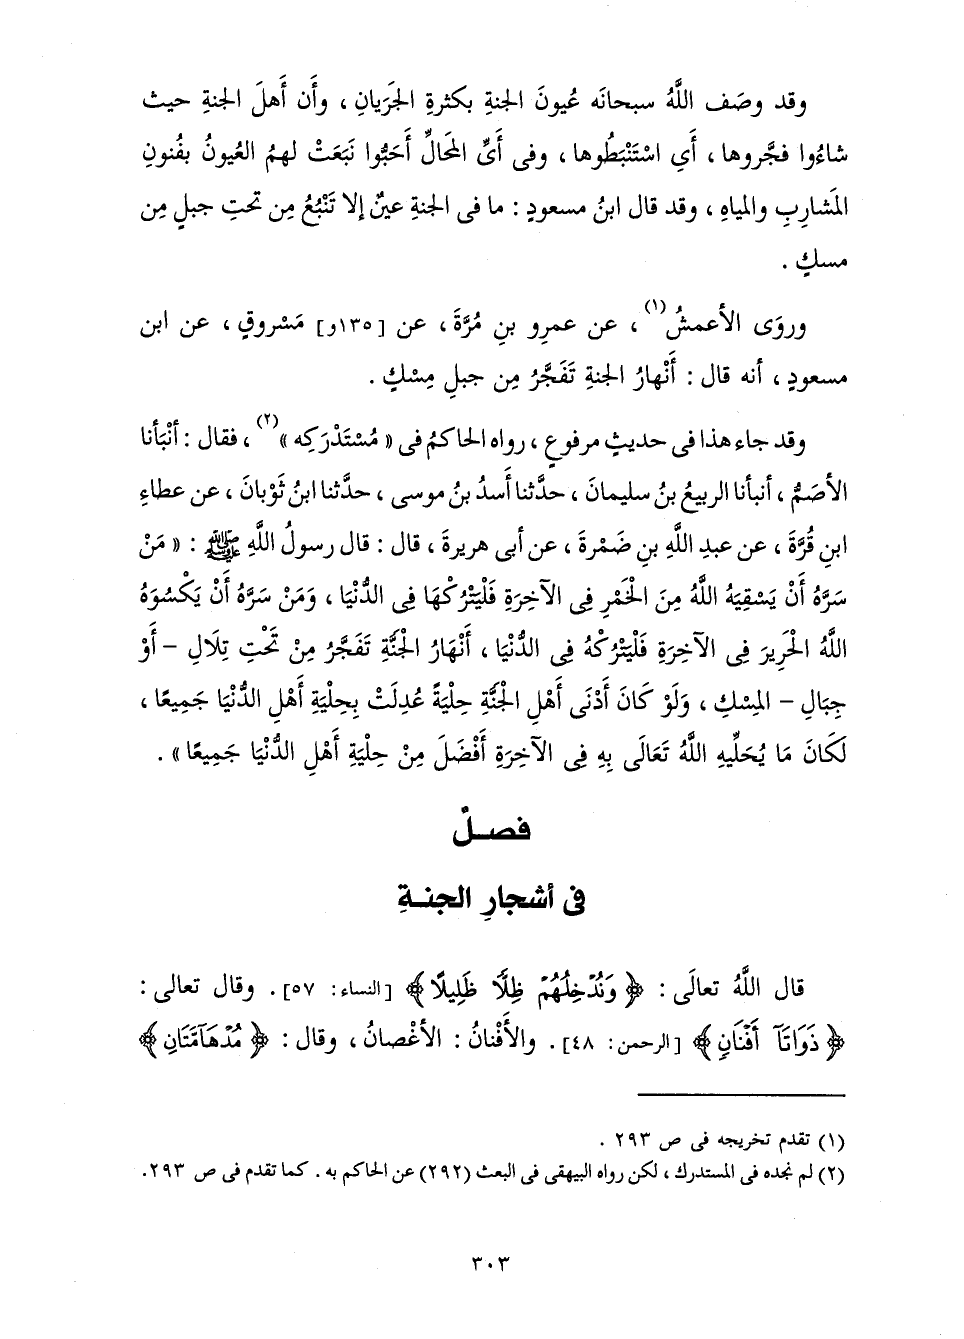 وقد وصَف اللَّهُ سبحانَه عُيونَ الجنةِ بكثرةِ الجَرَيانِ ، وأَن أَهلَ الجنةِ حيث
شاءُوا فجَّروها ، أَيِ اسْتَنْبَطُوها ، وفى أَىِّ المَحَالِّ أَحَبُّوا نَبَعَتْ لهمُ العُيونُ بفُنونِ
المَشارِبِ والمياهِ ، وقد قال ابنُ مسعودٍ : ما فى الجنةِ عينٌ إلا تَنْبُعُ مِن تحتِ جبلٍ مِن
مسكٍ .
وروَى الأعمشُ (١) ، عن عمرِو بنِ مُرَّةَ ، عن [١٣٥و] مَسْروقٍ ، عن ابن
مسعودٍ ، أنه قال : أَنْهارُ الجنةِ تَفَجَّرُ مِن جبلِ مِسْكٍ .
وقد جاء هذا فى حديثٍ مرفوعٍ ، رواه الحاكمُ فى « مُسْتَدْرَكِه » (٢) ، فقال : أنْبَأنا
الأصَمُّ ، أنبأنا الربيعُ بنُ سليمانَ ، حدَّثنا أَسدُ بنُ موسى ، حدَّثنا ابنُ ثَوْبانَ ، عن عطاءِ
ابنِ قُرَّةَ ، عن عبدِ اللَّهِ بنِ ضَمْرةَ ، عن أبى هريرةَ ، قال : قال رسولُ اللَّهِ ﷺ : « مَنْ
سَرَّهُ أَنْ يَسْقِيَهُ اللَّهُ مِنَ الْخَمْرِ فِى الآخِرَةِ فَلْيَتْرُكْهَا فِى الدُّنْيَا ، وَمَنْ سَرَّهُ أَنْ يَكْسُوَهُ
اللَّهُ الْحَرِيرَ فِى الآخِرَةِ فَلْيَتْرُكْهُ فِى الدُّنْيَا ، أَنْهَارُ الْجَنَّةِ تَفَجَّرُ مِنْ تَحْتِ تِلَالِ - أَوْ
جِبَالِ - الْمِسْكِ ، وَلَوْ كَانَ أَدْنَى أَهْلِ الْجَنَّةِ حِلْيَةً عُدِلَتْ بِحِلْيَةِ أَهْلِ الدُّنْيَا جَمِيعًا ،
لَكَانَ مَا يُحَلِّيهِ اللَّهُ تَعَالَى بِهِ فِى الآخِرَةِ أَفْضَلَ مِنْ حِلْيَةِ أَهْلِ الدُّنْيَا جَمِيعًا » .
فصلٌ
فى أشجارِ الجنةِ
قال اللَّهُ تعالَى : ﴿ وَنُدْخِلُهُمْ ظِلًّا ظَلِيلًا ﴾ [النساء: ٥٧] . وقال تعالى :
﴿ ذَوَاتَآ أَفْنَانٍ ﴾ [الرحمن: ٤٨] . والأَفْنانُ : الأغْصانُ ، وقال : ﴿ مُدْهَآمَّتَانِ ﴾
(١) تقدم تخريجه فى ص ٢٩٣ .
(٢) لم نجده فى المستدرك ، لكن رواه البيهقى فى البعث (٢٩٢) عن الحاكم به . كما تقدم فى ص ٢٩٣ .
٣٠٣